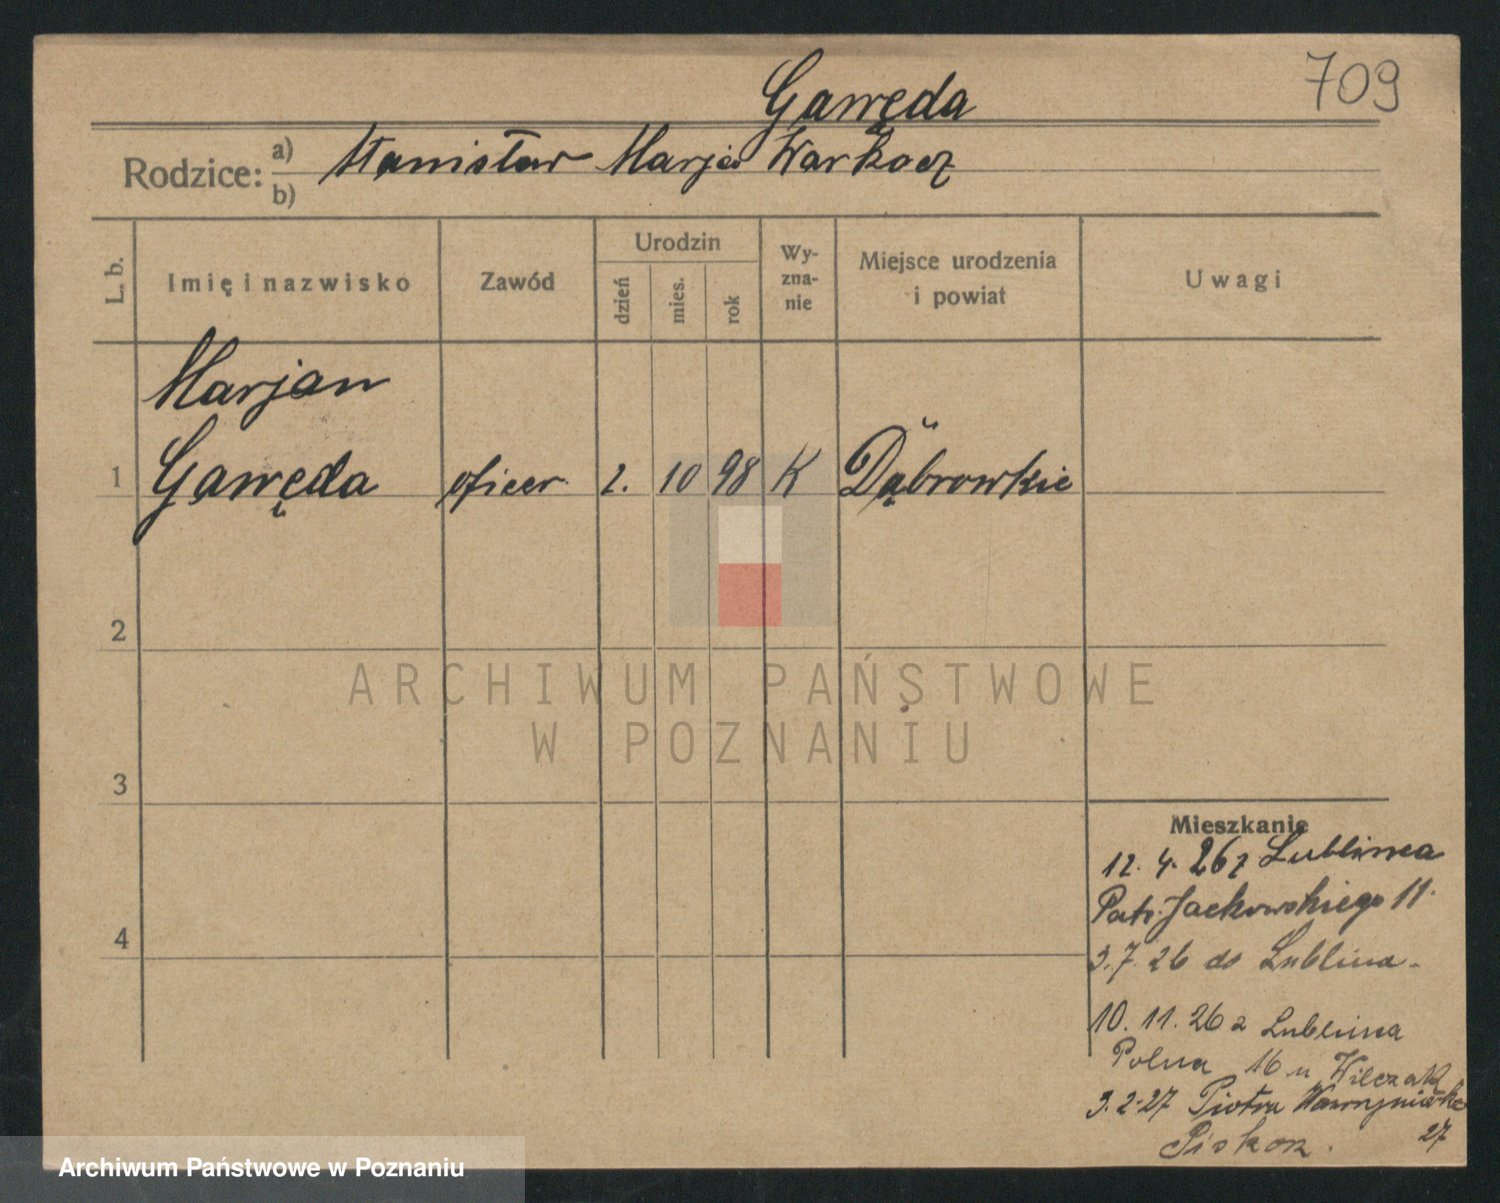 709
Gawęda
Rodzice: a) Stanisław Marja Warkocz
b)
L. b. Imię i nazwisko Zawód Urodzin dzień mies. rok Wy-zna-nie Miejsce urodzenia i powiat Uwagi
Marjan
1 Gawęda oficer. 2. 10 98 K Dąbrowkie
2
3
4
Mieszkanie
12. 4. 26 z Lublina
Patr. Jackowskiego 11.
3.7.26 do Lublina.
10. 11. 26 z Lublina
Polna 16 u Wilczak
3.2.27 Piotra Wawrzyniaka
27
Piskorz.
ARCHIWUM PAŃSTWOWE
W POZNANIU
Archiwum Państwowe w Poznaniu